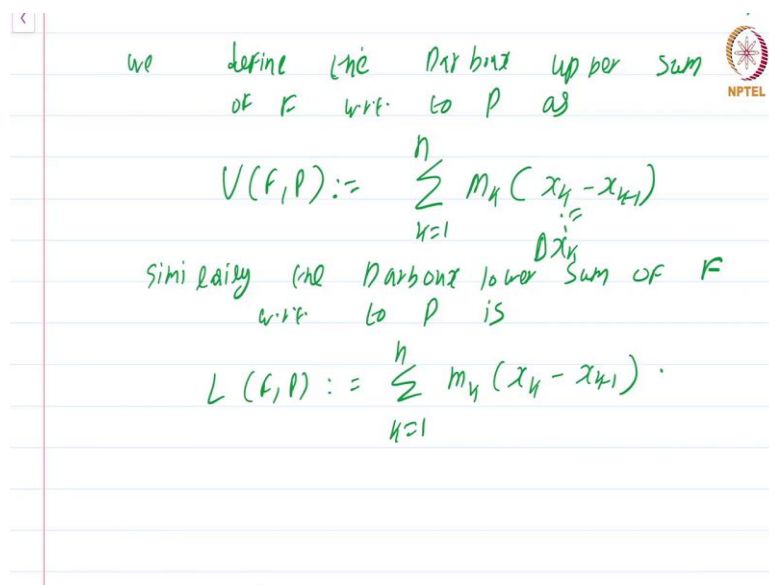 we define the Darboux upper sum
NPTEL
of F w.r.t. to P as
U(F,P) := n ∑ k=1 M_k (x_k - x_{k-1})
:= Δx_k
Similarly the Darboux lower sum of F
w.r.t. to P is
L(F,P) := n ∑ k=1 m_k (x_k - x_{k-1}) .